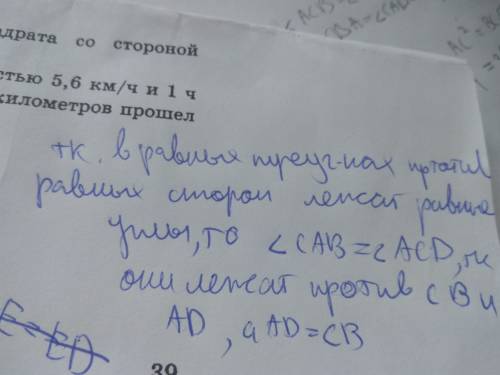 драта со стороной
стью 5,6 км/ч и 1 ч
километров прошел
тк. в равных треуг-ках против
равных сторон лежат равные
углы, то ∠CAB=∠ACD, тк
они лежат против CB и
AD, а AD=CB
39